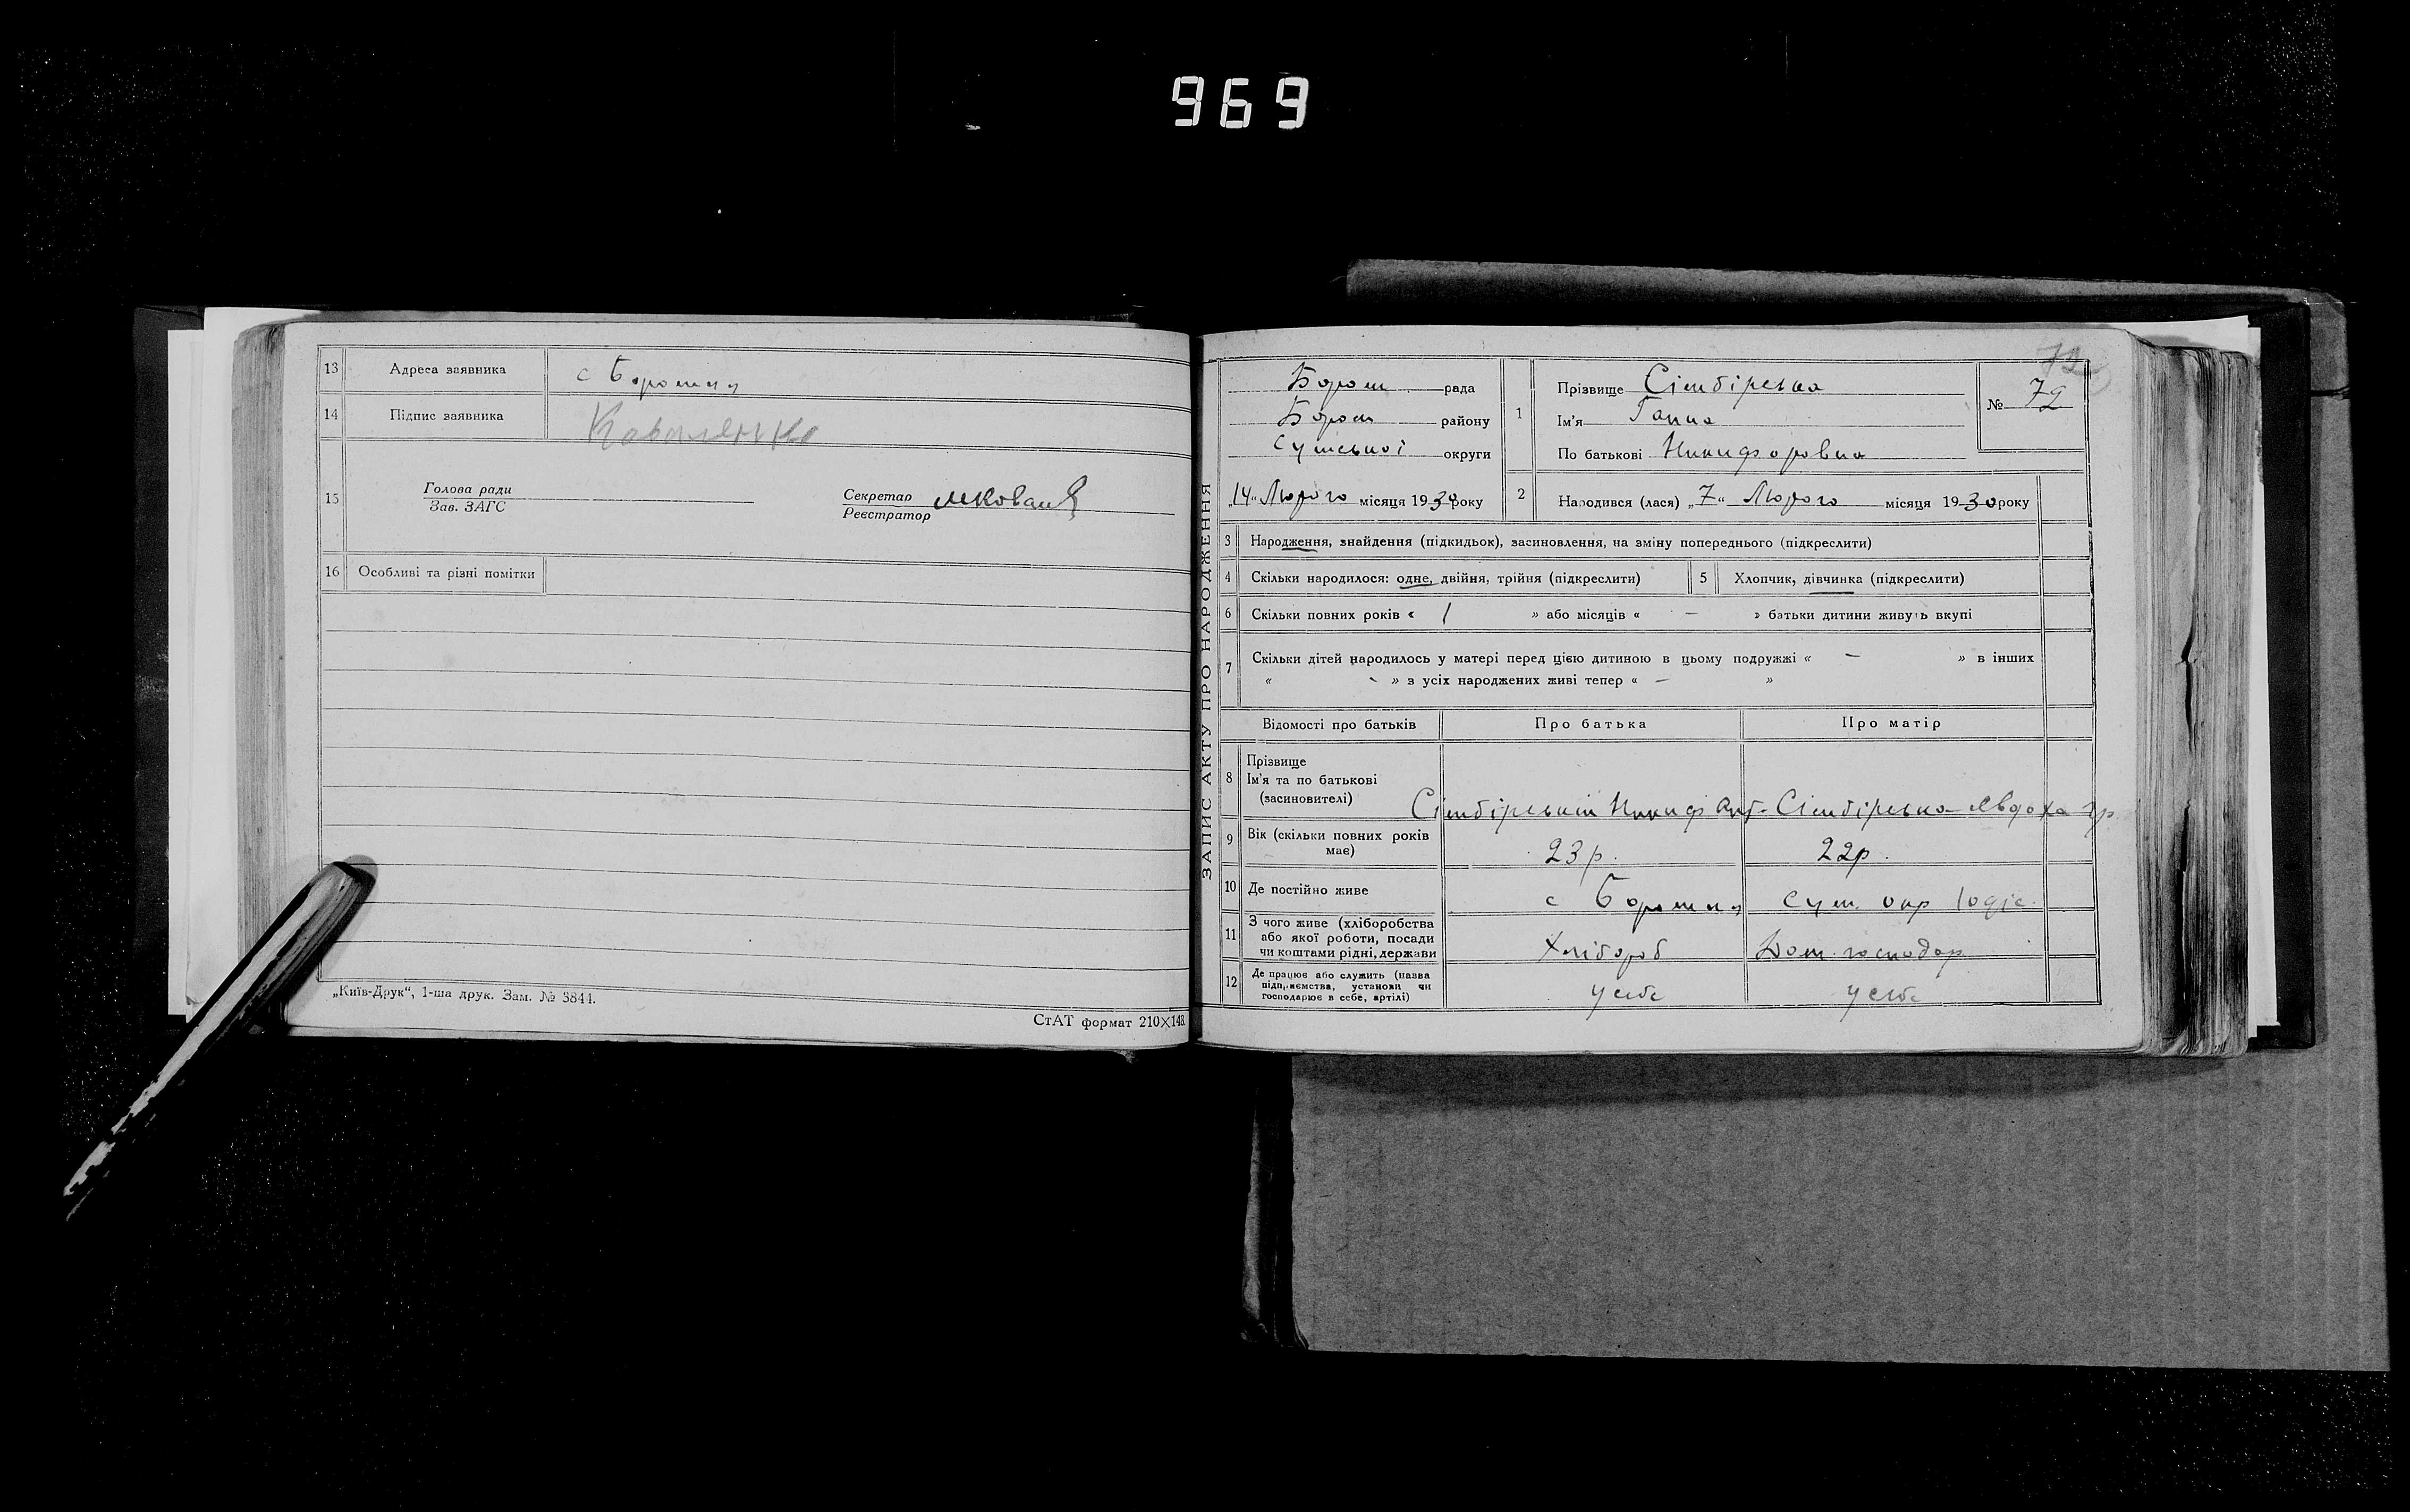 969
13 Адреса заявника с Боромля
14 Підпис заявника Коваленко
15 Голова ради
Зав. ЗАГС
Секретар
Реєстратор
16 Особливі та різні помітки
„Київ-Друк“, 1-ша друк. Зам. № 3844.
СтАТ формат 210×148.
ЗАПИС АКТУ ПРО НАРОДЖЕННЯ
72
Бором рада
Бором району
Сумської округи
„14“ Лютого місяця 1930 року
1 Прізвище Сімбірська
Ім'я Ганна
По батькові Никифоровна
№ 72
2 Народився (лася) „7“ Лютого місяця 1930 року
3 Народження, знайдення (підкидьок), засиновлення, на зміну попереднього (підкреслити)
4 Скільки народилося: одне, двійня, трійня (підкреслити) 5 Хлопчик, дівчинка (підкреслити)
6 Скільки повних років « 1 » або місяців « — » батьки дитини живуть вкупі
7 Скільки дітей народилось у матері перед цією дитиною в цьому подружжі « — » в інших
« - » з усіх народжених живі тепер « — »
Відомості про батьків Про батька Про матір
8 Прізвище
Ім'я та по батькові
(засиновителі)
Сімбірський Никиф Сімбірська Явдоха
9 Вік (скільки повних років
має)
23 р. 22 р.
10 Де постійно живе с Боромля Сум. окр
11 З чого живе (хліборобства
або якої роботи, посади
чи коштами рідні, держави
Хлібороб Дом. господар
12 Де працює або служить (назва
підприємства, установи чи
господарює в себе, артілі)
у себе у себе